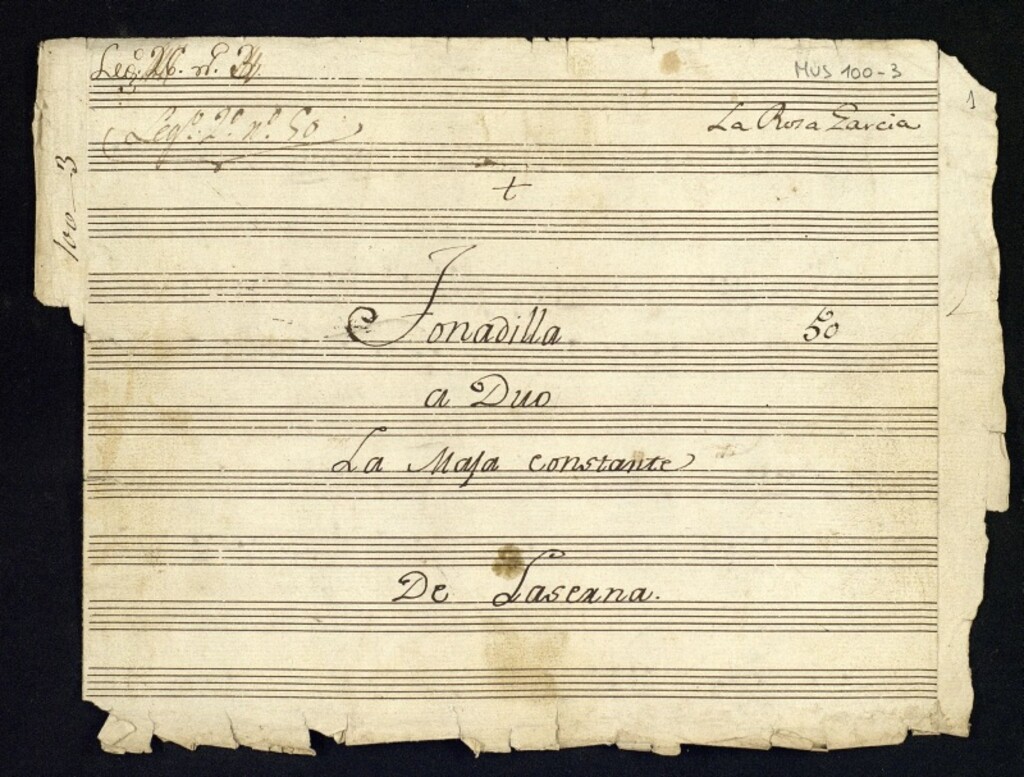 Leg.º 26. n.º 34.
MUS 100-3
1
Leg.º 2.º n.º 50
La Rosa Garcia
100-3
t
Tonadilla 50
a Duo
La Maja constante
De Laserna.